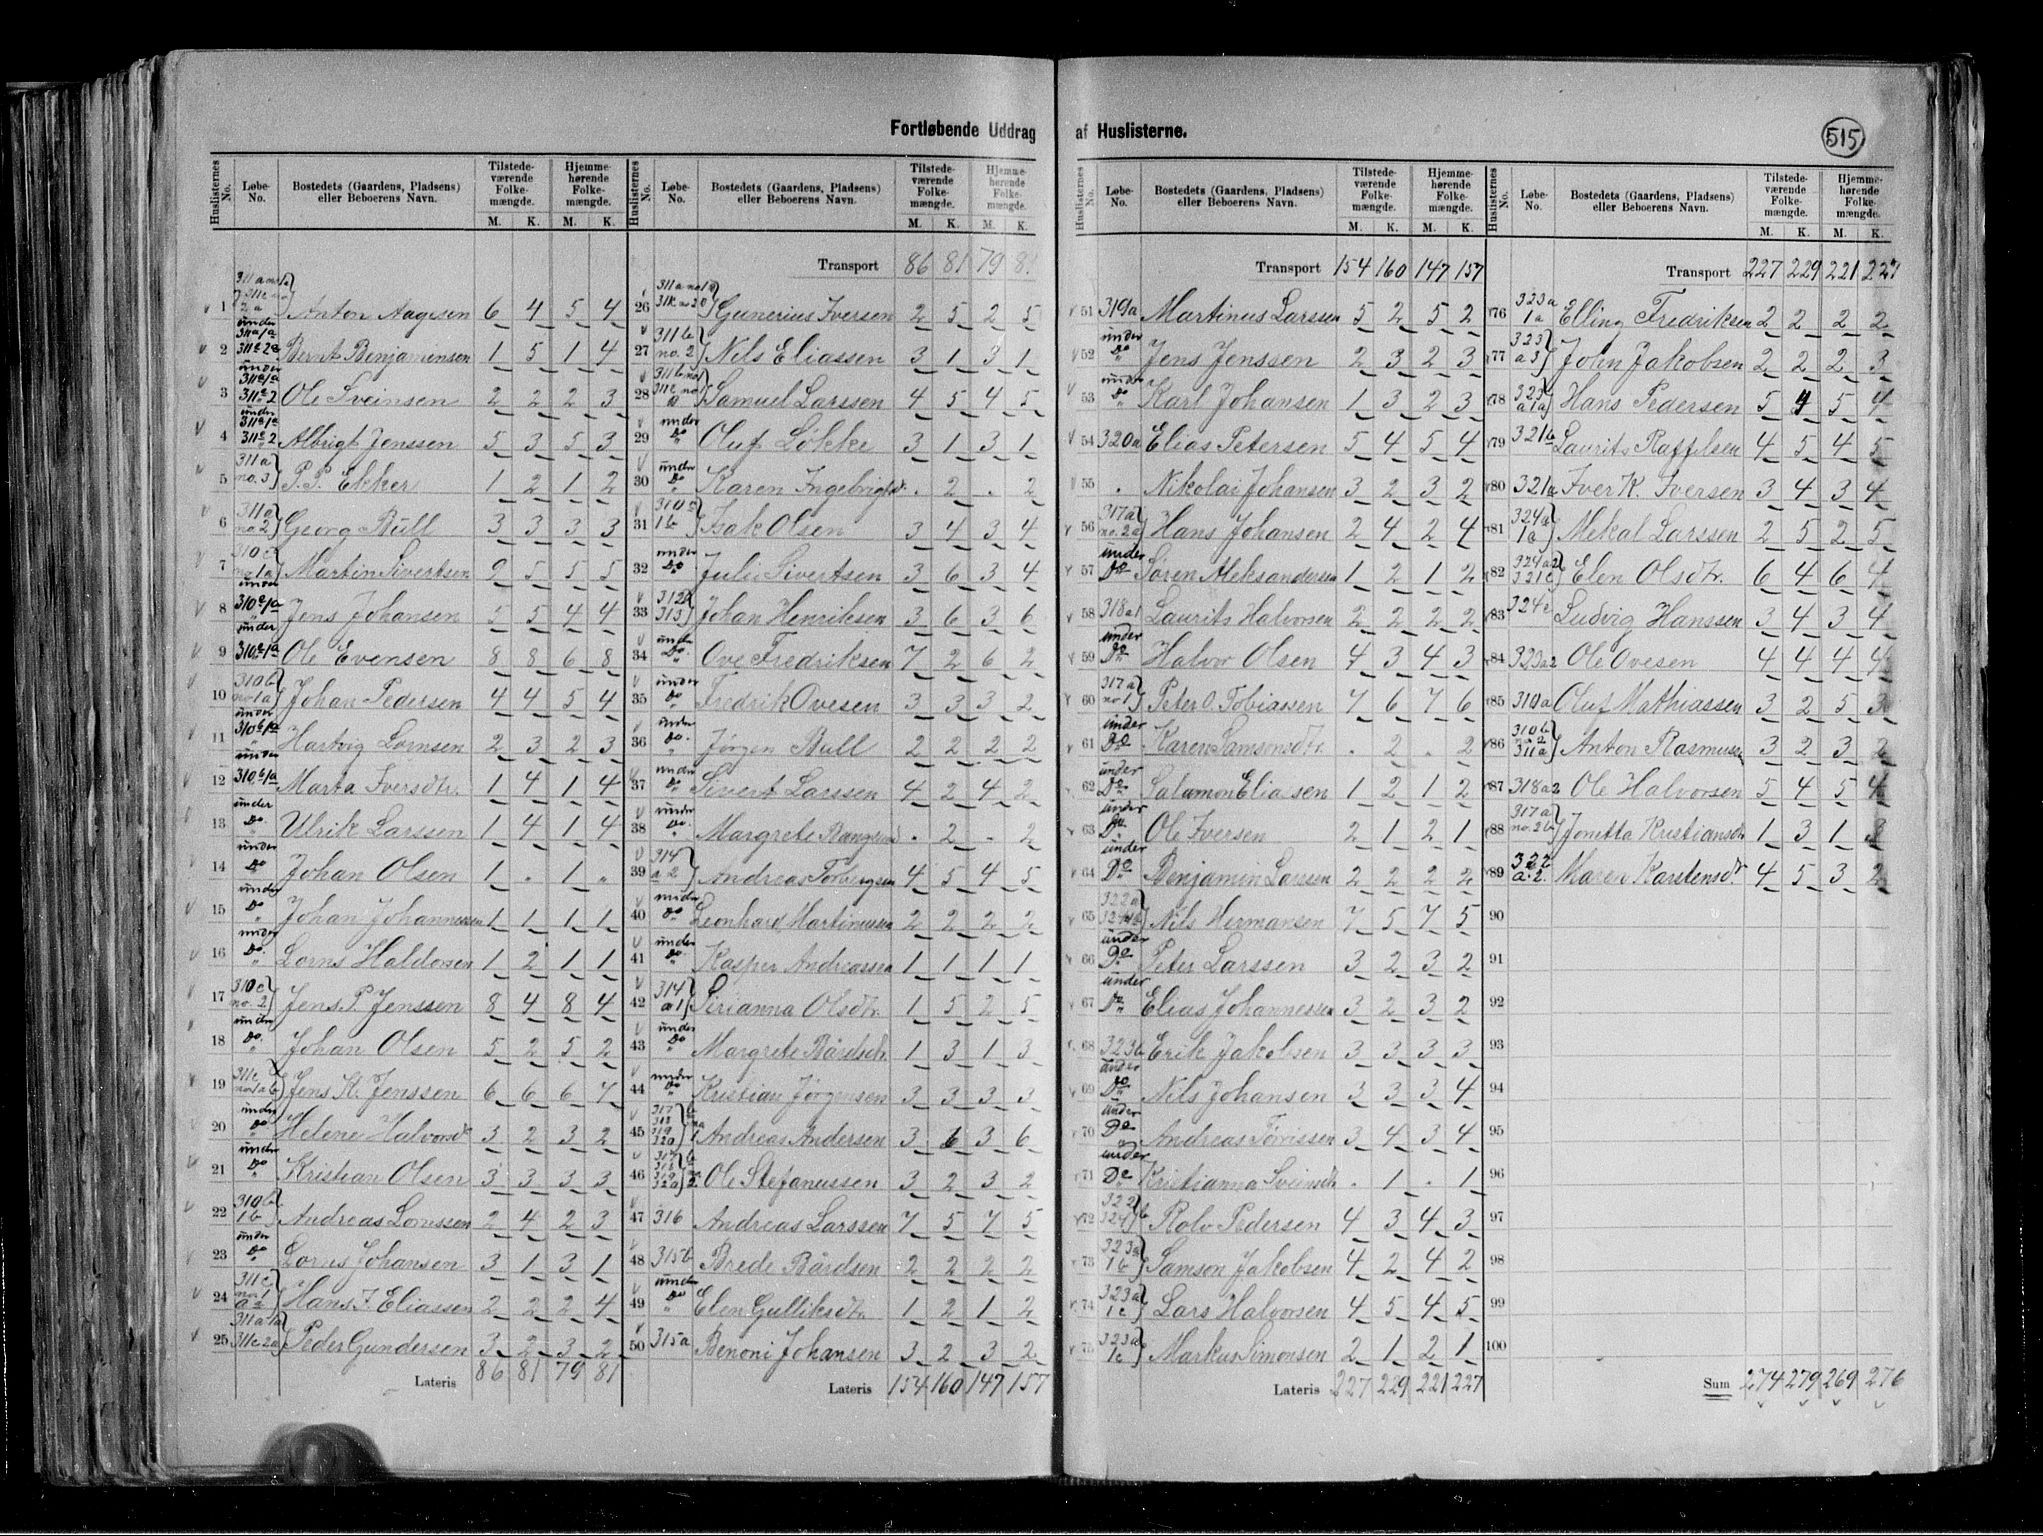 Fortløbende Uddrag af Huslisterne.
515
Huslisternes No. Løbe-No. Bostedets (Gaardens, Pladsens) eller Beboerens Navn. Tilstedeværende Folkemængde. M. K. Hjemmehørende Folkemængde. M. K.
1 Anton Aagesen 6 4 5 4
2 Bernt Benjaminsen 1 5 1 4
3 Ole Sveinsen 2 2 2 3
4 Albrigt Jenssen 5 3 5 3
5 311a no. 3 P. P. Ekker 1 2 1 2
6 311a no 2 Georg Bull 3 3 3 3
7 310c no 1a Martin Sivertsen 9 5 5 5
8 under 310c1a Jens Johansen 5 5 4 4
9 under 310c1a Ole Evensen 8 8 6 8
10 310b no 1a Johan Pedersen 4 4 5 4
11 under 310b1a Hartvig Lornsen 2 3 2 3
12 under 310b1a Marta Iversdtr. 1 4 1 4
13 under Do. Ulrik Larssen 1 4 1 4
14 under Do Johan Olsen 1 . 1 "
15 under Do Johan Johannessen 1 1 1 1
16 under Do. Lorns Haldorsen 1 2 1 1
17 310c no. 2 Jens P. Jenssen 8 4 8 4
18 under Do. Johan Olsen 5 2 5 2
19 Jens K. Jenssen 6 6 6 7
20 under Do Helene Halvorsdtr 3 2 3 2
21 under Do Kristian Olsen 3 3 3 3
22 310b 1b Andreas Lornssen 2 4 2 3
23 under Do Lorns Johansen 3 1 3 1
24 Hans J. Eliassen 2 2 2 4
25 Peder Gundersen 3 2 3 2
Lateris 86 81 79 81
Transport 86 81 79 81
26 Gunerius Iversen 2 5 2 5
27 311b no. 2 Nils Eliassen 3 1 3 1
28 Samuel Larssen 4 5 4 5
29 under Do Oluf Løkke 3 1 3 1
30 under Do Karen Ingebrigtsdr. . 2 . 2
31 310a 1b Isak Olsen 3 4 3 4
32 under Do. Julie Sivertsen 3 6 3 4
33 Johan Henriksen 3 6 3 6
34 under Do. Ove Fredriksen 7 2 6 2
35 under Do Fredrik Ovesen 3 3 3 2
36 under Do. Jørgen Bull 2 2 2 2
37 under Do Sivert Larssen 4 2 4 2
38 under Do. Margrete . 2 - 2
39 314 a 2 Andreas Torbergsen 4 5 4 5
40 under Do Leonhard Martinussen 2 2 2 2
41 under Do. Kasper Andreassen 1 1 1 1
42 314 a1 Sirianna Olsdtr. 1 5 2 5
43 under Do Margrete Bårdsdtr. 1 3 1 3
44 under Do Kristian Jørgensen 3 3 3 3
45 Andreas Andersen 3 6 3 6
46 Ole Stefanussen 3 2 3 2
47 316 Andreas Larssen 7 5 7 5
48 315b Brede Bårdsen 2 2 2 2
49 under Do Elen Gulliksdtr. 1 2 1 2
50 315a Benoni Johansen 3 2 3 2
Lateris 154 160 147 157
Transport 154 160 147 157
51 319a Martinus Larssen 5 2 5 2
52 under Do Jens Jenssen 2 3 2 3
53 under Do Karl Johansen 1 3 2 3
54 320a Elias Petersen 5 4 5 4
55 . Nikolai Johansen 3 2 3 2
56 317a no. 2a Hans Johansen 2 4 2 4
57 under Do Søren Aleksandersen 1 2 1 2
58 318a1 Laurits Halvorsen 2 2 2 2
59 under Do Halvor Olsen 4 3 4 3
60 317a no 1 Peter O. Tobiassen 7 6 7 6
61 under Do Karen Samsonsdtr. . 2 . 2
62 under Do Salamon Eliasen 1 2 1 2
63 under Do. Ole Iversen 2 1 2 1
64 under Do Benjamin Larssen 2 2 2 2
65 Nils Hermansen 7 5 7 5
66 under Do Peter Larssen 3 2 3 2
67 under Do Elias Johannessen 3 2 3 2
68 323b Erik Jakobsen 3 3 3 3
69 under Do Nils Johansen 3 3 3 4
70 under Do Andreas Tørrissen 3 4 3 4
71 under Do Kristianna Sveinsdtr. . 1 . 1
72 Rolv Pedersen 4 3 4 3
73 323a 1b Samson Jakobsen 4 2 4 2
74 323a 1c Lars Halvorsen 4 5 4 5
75 323a 1c Markus Simonsen 2 1 2 1
Lateris 227 229 221 227
Transport 227 229 221 227
76 323a 1a Elling Fredriksen 2 2 2 2
77 323 a3 John Jakobsen 2 2 2 3
78 323 a1a Hans Pedersen 5 4 5 4
79 321b Laurits Raffelsen 4 5 4 5
80 321a Iver K. Iversen 3 4 3 4
81 324a 1a Mekal Larssen 2 5 2 5
82 324a2 321c Elen Olsdtr. 6 4 6 4
83 324c Ludvig Hanssen 3 4 3 4
84 323a2 Ole Ovesen 4 4 4 4
85 310a Oluf Mathiassen 3 2 5 3
86 310b no. 2 311a Anton Rasmussen 3 2 3 2
87 318a2 Ole Halvorsen 5 4 5 4
88 317a no. 2b Jonetta Kristiansdtr 1 3 1 3
89 322 a. 2. Maren Karstensdtr. 4 5 3 2
90
91
92
93
94
95
96
97
98
99
100
Sum 274 279 269 276